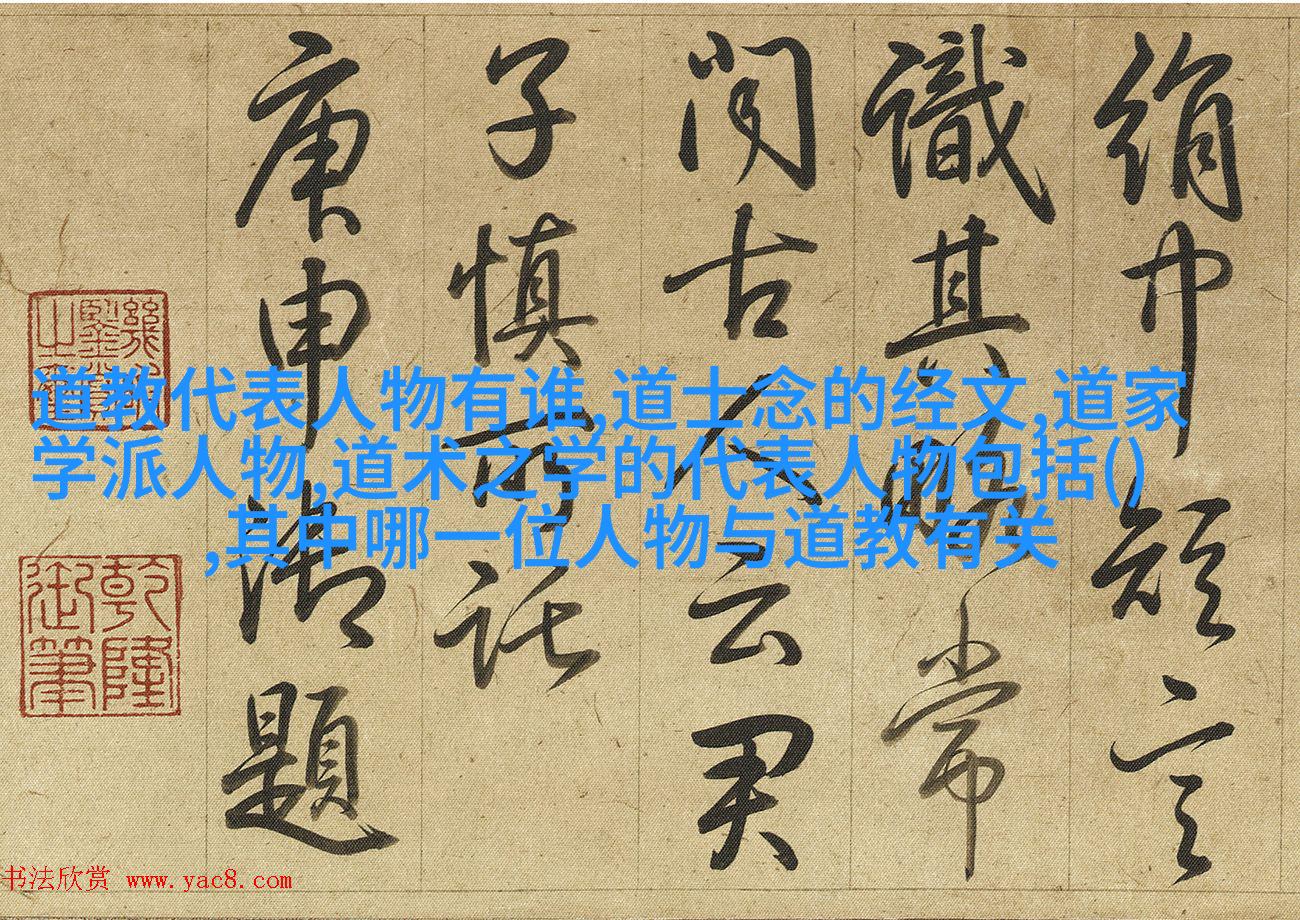 絹巾言
識其常
閒古人云君
子慎所託
庚申御題
乾隆御筆
道教代表人物有谁,道士念的经文,道家
学派人物,道术之学的代表人物包括()
,其中哪一位人物与道教有关
书法欣赏 www.yac8.com